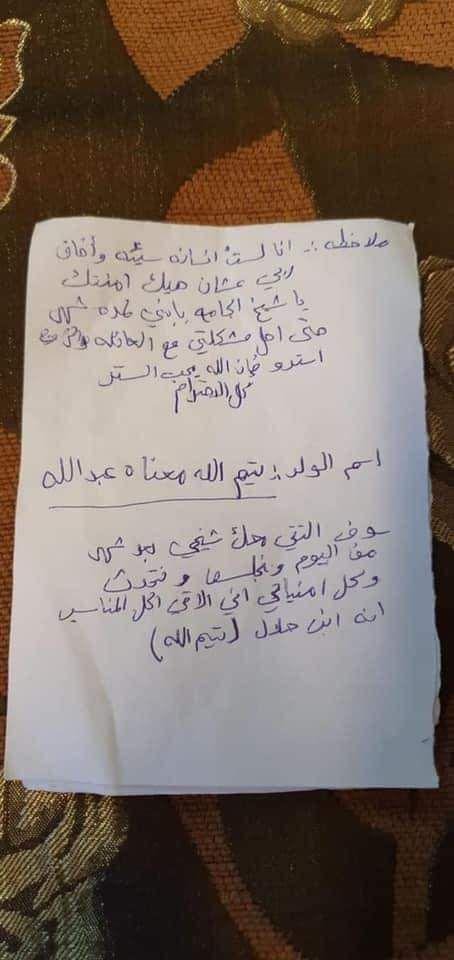 ملاحظه :- انا لستُ انسانه سيئه وأخاف
ربي عشان هيك امنتك
يا شيخ الجامع بابني لمده شهر
حتى احل مشكلتي مع العائله
استرو فان الله يحب الستر
كل الاحترام
اسم الولد :- تيم الله معناه عبدالله
سوف التقي معك شيخي بعد شهر
من اليوم ونجلس معا ونتحدث
وكل امنياتي اني الاقي الحل المناسب
انه ابن حلال (تيم الله)